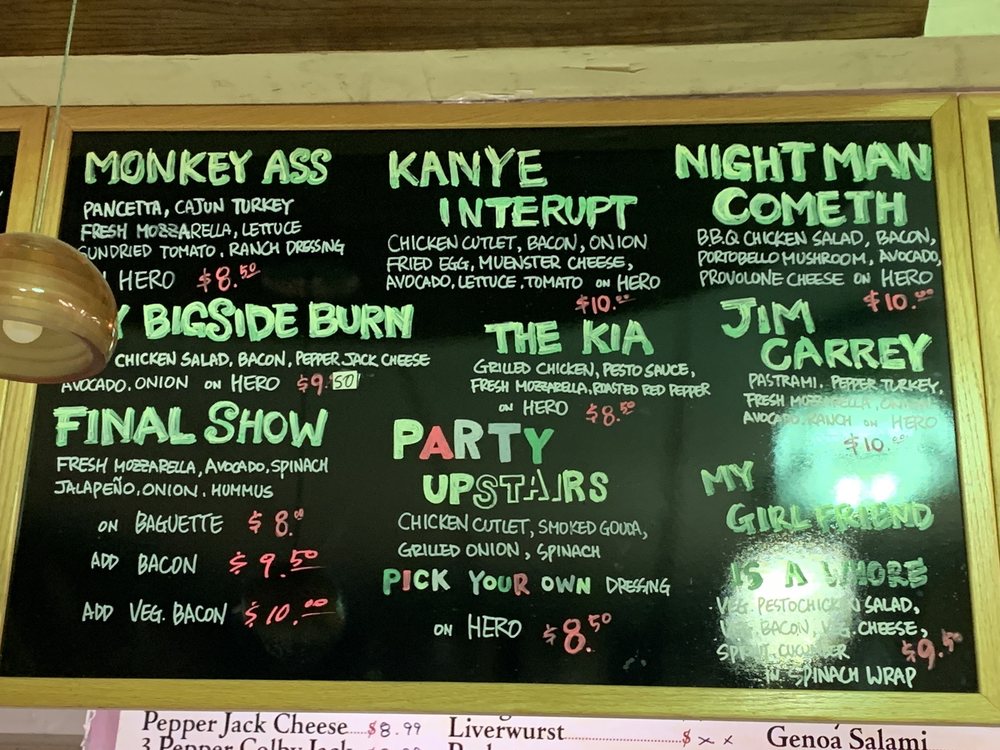 MONKEY ASS
PANCETTA, CAJUN TURKEY
FRESH MOZZARELLA, LETTUCE
SUNDRIED TOMATO, RANCH DRESSING
HERO $8.50
BIGSIDE BURN
CHICKEN SALAD, BACON, PEPPER JACK CHEESE
AVOCADO, ONION ON HERO $9.50
FINAL SHOW
FRESH MOZZARELLA, AVOCADO, SPINACH
JALAPEÑO, ONION, HUMMUS
ON BAGUETTE $8.00
ADD BACON $9.50
ADD VEG. BACON $10.00
KANYE
INTERUPT
CHICKEN CUTLET, BACON, ONION
FRIED EGG, MUENSTER CHEESE,
AVOCADO, LETTUCE, TOMATO ON HERO
$10.00
THE KIA
GRILLED CHICKEN, PESTO SAUCE,
FRESH MOZZARELLA, ROASTED RED PEPPER
ON HERO $8.50
PARTY
UPSTAIRS
CHICKEN CUTLET, SMOKED GOUDA,
GRILLED ONION, SPINACH
PICK YOUR OWN DRESSING
ON HERO $8.50
NIGHT MAN
COMETH
B.B.Q CHICKEN SALAD, BACON,
PORTOBELLO MUSHROOM, AVOCADO,
PROVOLONE CHEESE ON HERO
$10.00
JIM
CARREY
PASTRAMI, PEPPER TURKEY,
FRESH MOZZARELLA, ONION
AVOCADO, RANCH ON HERO
$10.00
MY
GIRLFRIEND
IS A WHORE
VEG. PESTO CHICKEN SALAD,
VEG. BACON, VEG. CHEESE,
SPROUT, CUCUMBER $9.50
IN SPINACH WRAP
Pepper Jack Cheese....$8.99
3 Pepper Colby Jack
Liverwurst....................$ x x
Genoá Salami